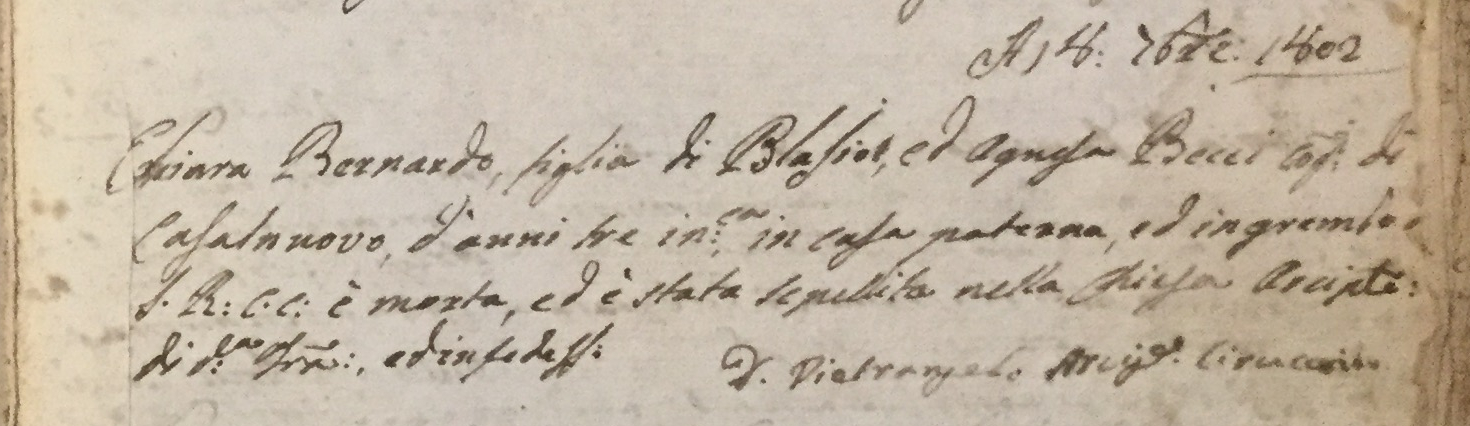 A 18: 7bre: 1802
Chiara Bernardo, figlia di Blasio, ed Agnesa Becci cog: di
Casalnuovo, d'anni tre in:ca in casa paterna, ed in grembo
S. R: C: C: è morta, ed è stata sepellita nella Chiesa Arcipte:
di d:ta Trã:, ed in fede ss:
D. Pietrangelo Arcip: